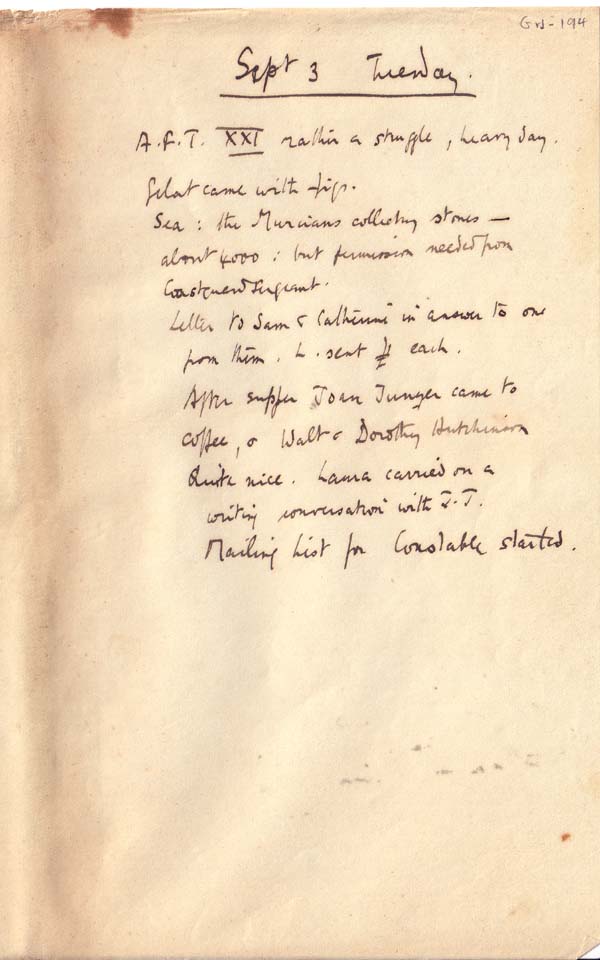 GRJ-194
Sept 3 Tuesday.
A.F.T. XXI rather a struggle, heavy day.
Gelat came with figs.
Sea: the Murcians collecting stones —
about 4000: but permission needed from
Coastguard Sergeant.
Letter to Sam & Catherine in answer to one
from them. L. sent £1 each.
After supper Joan Junyer came to
coffee, & Walt & Dorothy Hutchinson
Quite nice. Laura carried on a
writing conversation with J.J.
Mailing list for Constable started.